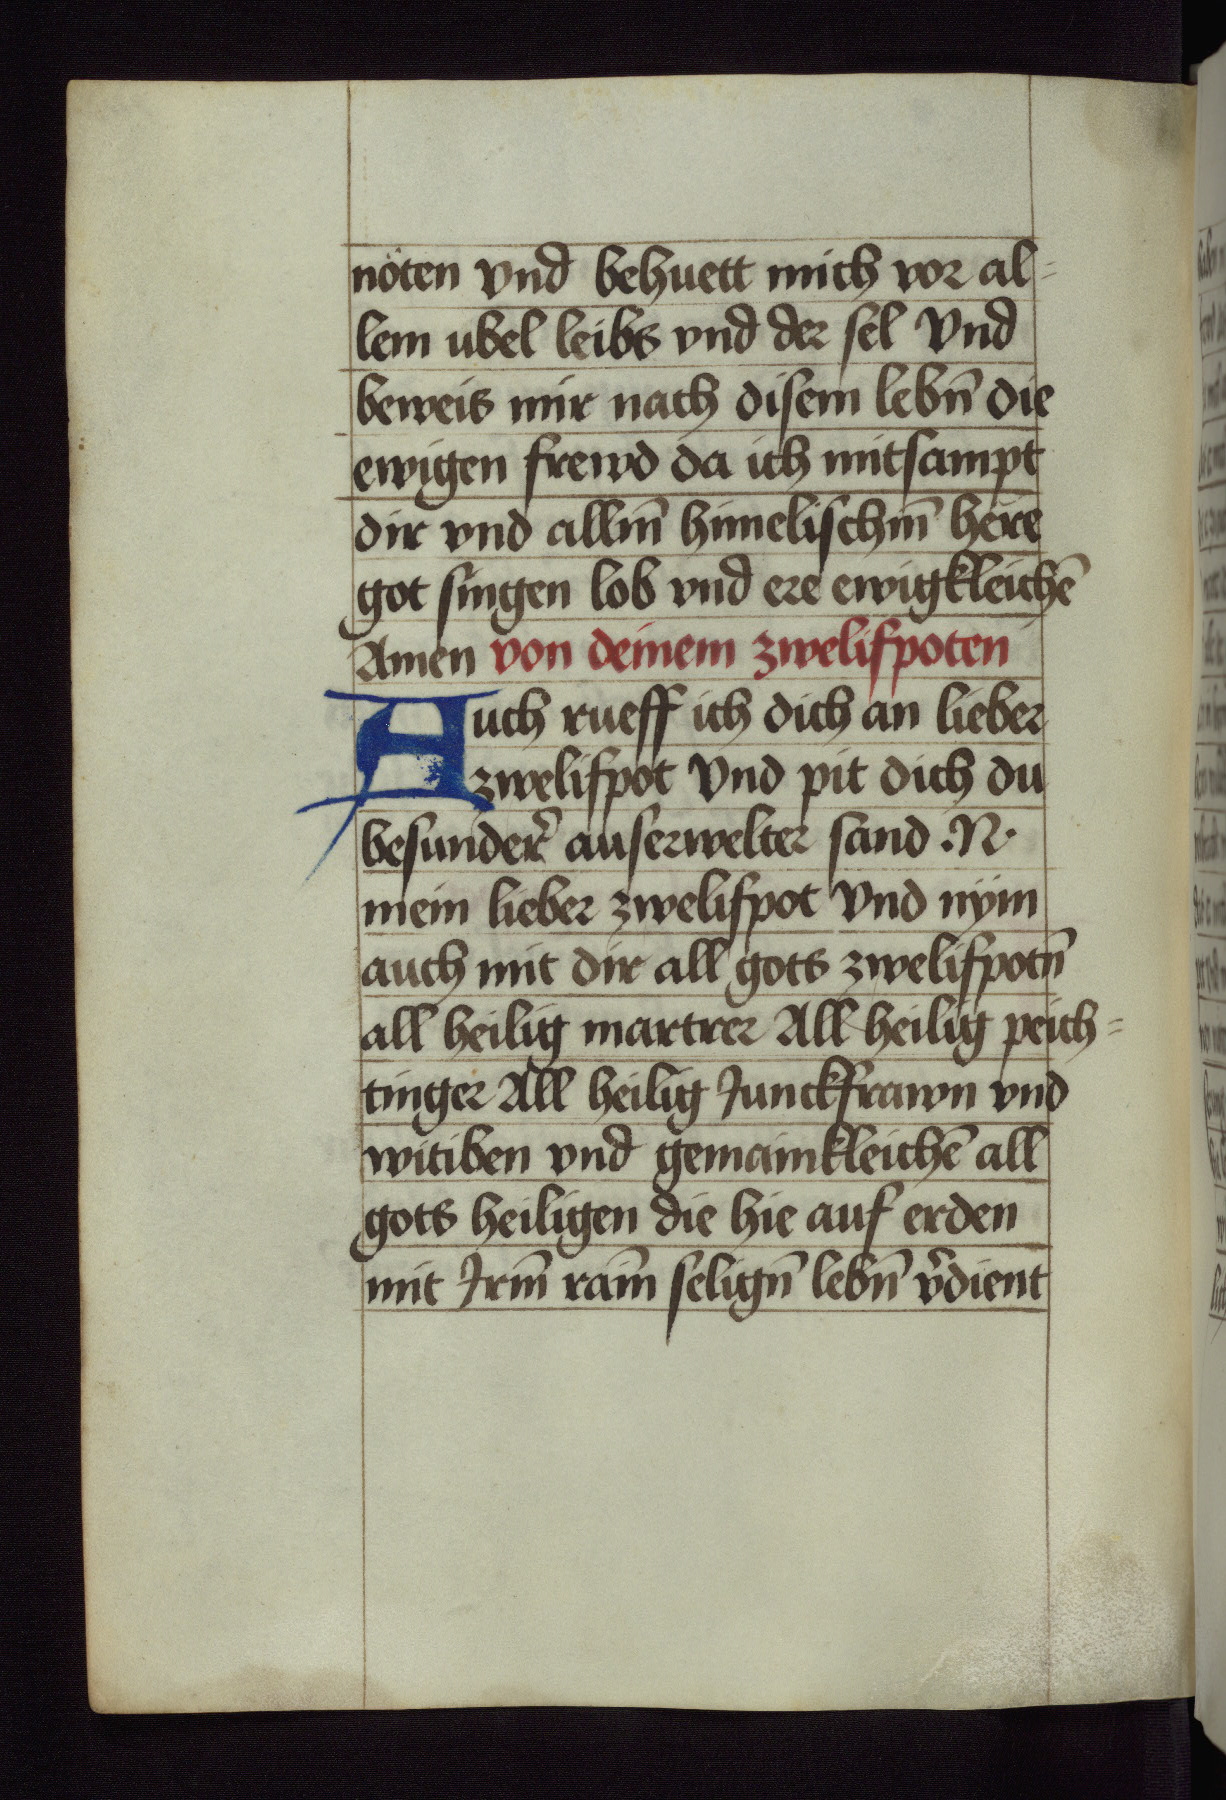 nöten vnd behuett mich vor al=
lem ubel leibs vnd der sel Vnd
beweis mir nach disem lebn̄ die
ewigen frewd da ich mitsampt
dir vnd allm̄ himelischm̄ here
got singen lob vnd ere ewigkleichē
Amen von deinem zwelifpoten
Auch rueff ich dich an lieber
zwelifpot Vnd pit dich du
besunder̄ auserwelter sand .N.
mein lieber zwelifpot Vnd nÿm
auch mit dir all gots zwelifpotn̄
all heilig martrer All heilig peich=
tinger All heilig Junckfrawn vnd
witiben vnd gemainkleichē all
gots heiligen die hie auf erden
mit Irm̄ raim selign̄ lebn̄ v̄dient